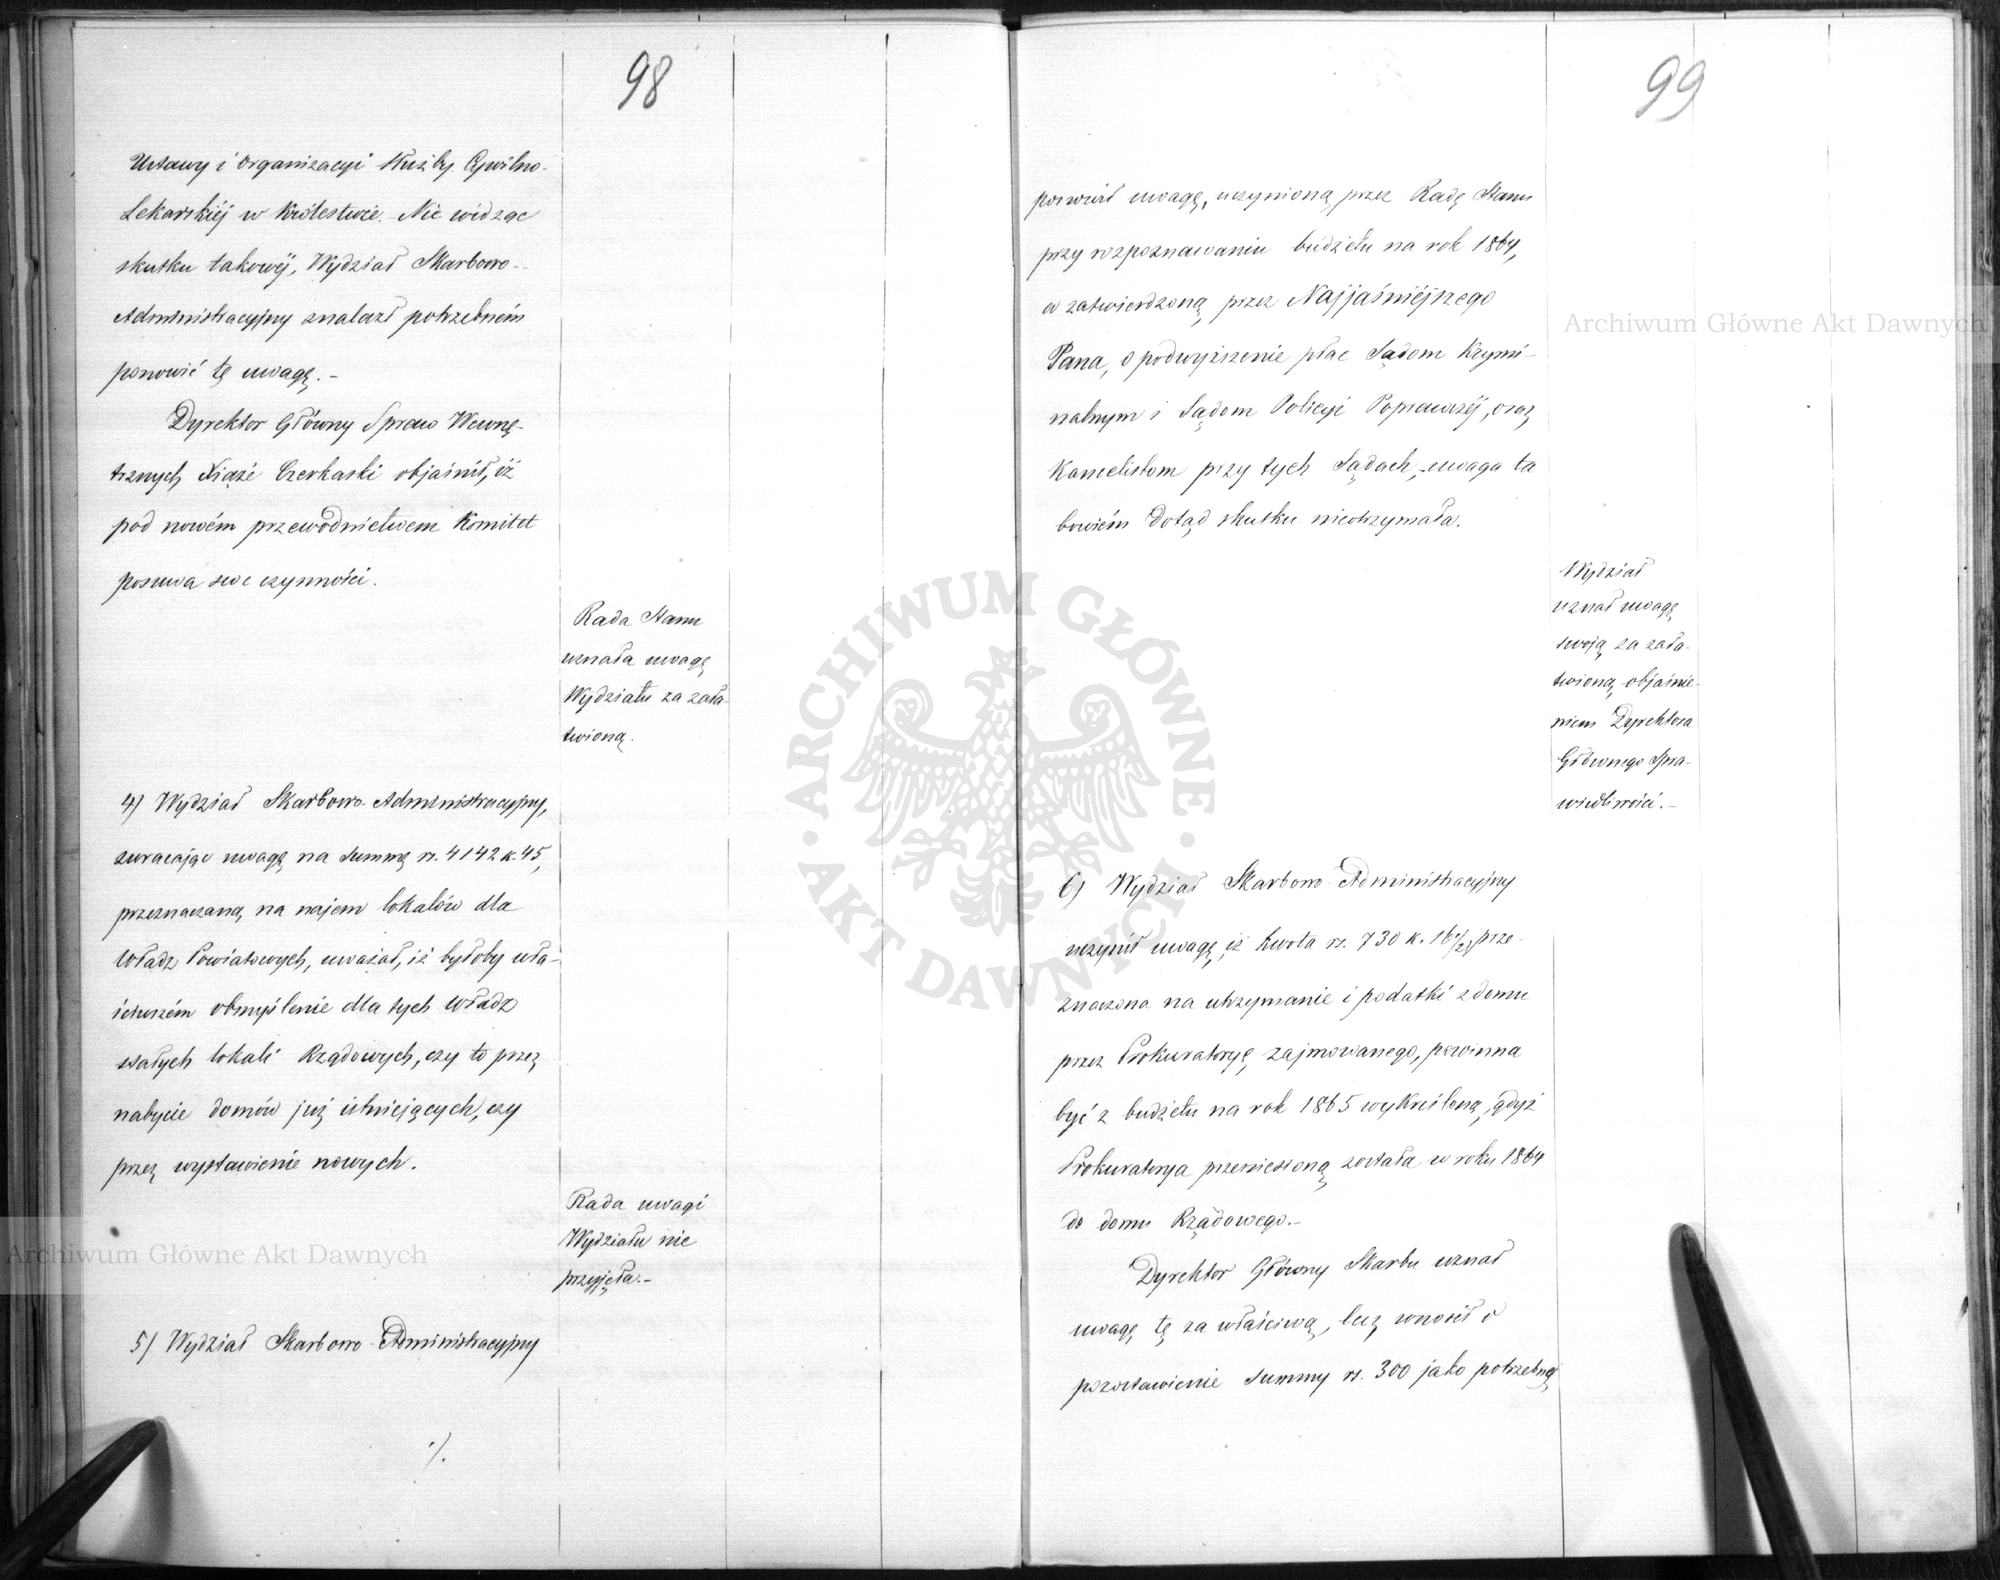 98
Ustawy i organizacyi służby Cywilno-
Lekarskiéj w Królestwie. Nie widząc
skutku takowéj, Wydział Skarbowo-
Administracyjny znalazł potrzebném
ponowić tę uwagę.-
Dyrektor Główny Spraw Wewnę-
trznych Xiąże Czerkaski objaśnił, iż
pod nowém przewodnictwem Komitet
posuwa swe czynności.
Rada Stanu
uznała uwagę
Wydziału za zała-
twioną.
4) Wydział Skarbowo-Administracyjny,
zwracając uwagę na summę rs. 4142 k. 45,
przeznaczaną na najem lokalów dla
Władz Powiatowych, uważał, iż byłoby wła-
ściwszém obmyślenie dla tych Władz
stałych lokali Rządowych, czy to przez
nabycie domów już istniejących, czy
przez wystawienie nowych.
Rada uwagi
Wydziału nie
przyjęła.-
5) Wydział Skarbowo-Administracyjny
./.
99
ponowił uwagę, uczynioną przez Radę Stanu
przy rozpoznawaniu budżetu na rok 1864,
a zatwierdzoną przez Najjaśniéjszego
Pana, o podwyższenie płac Sądom Krymi-
nalnym i Sądom Policyi Poprawczéj, oraz
Kancelistom przy tych Sądach, uwaga ta
bowiém dotąd skutku nieotrzymała.
Wydział
uznał uwagę
swoją za zała-
twioną objaśnie-
niem Dyrektora
Głównego Spra-
wiedliwości.-
6) Wydział Skarbowo-Administracyjny
uczynił uwagę, iż kwota rs. 730 k. 16 1/2, prze-
znaczona na utrzymanie i podatki z domu
przez Prokuratoryę zajmowanego, powinna
być z budżetu na rok 1865 wykreśloną, gdyż
Prokuratorya przeniesioną została w roku 1864
do domu Rządowego.-
Dyrektor Główny Skarbu uznał
uwagę tę za właściwą, lecz wnosił o
pozostawienie summy rs. 300 jako potrzebnéj
Archiwum Główne Akt Dawnych
Archiwum Główne Akt Dawnych
ARCHIWUM GŁÓWNE AKT DAWNYCH